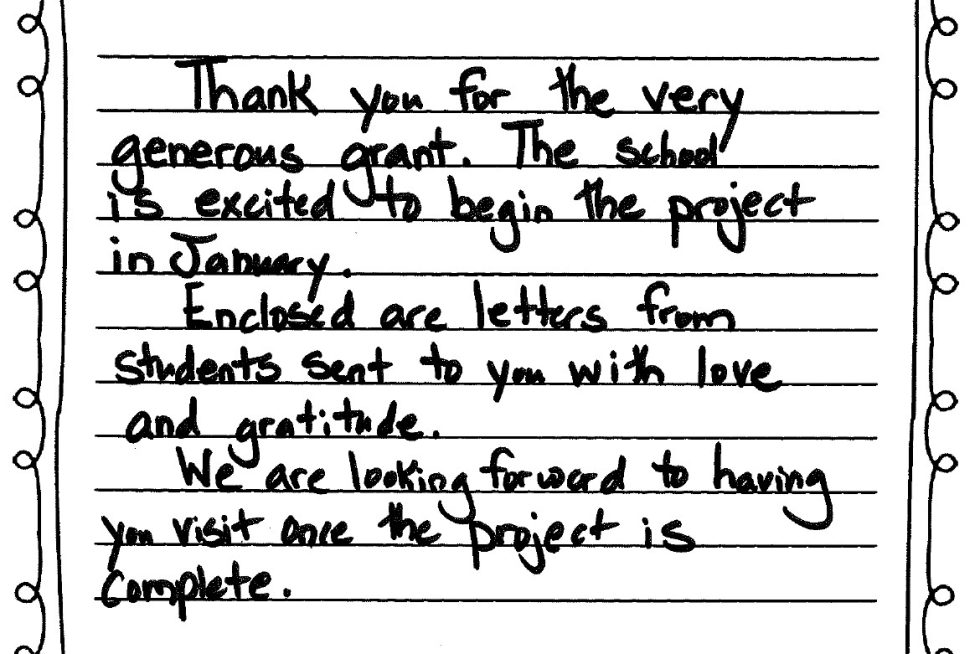 Thank you for the very
generous grant. The school
is excited to begin the project
in January.
Enclosed are letters from
students sent to you with love
and gratitude.
We are looking forward to having
you visit once the project is
complete.